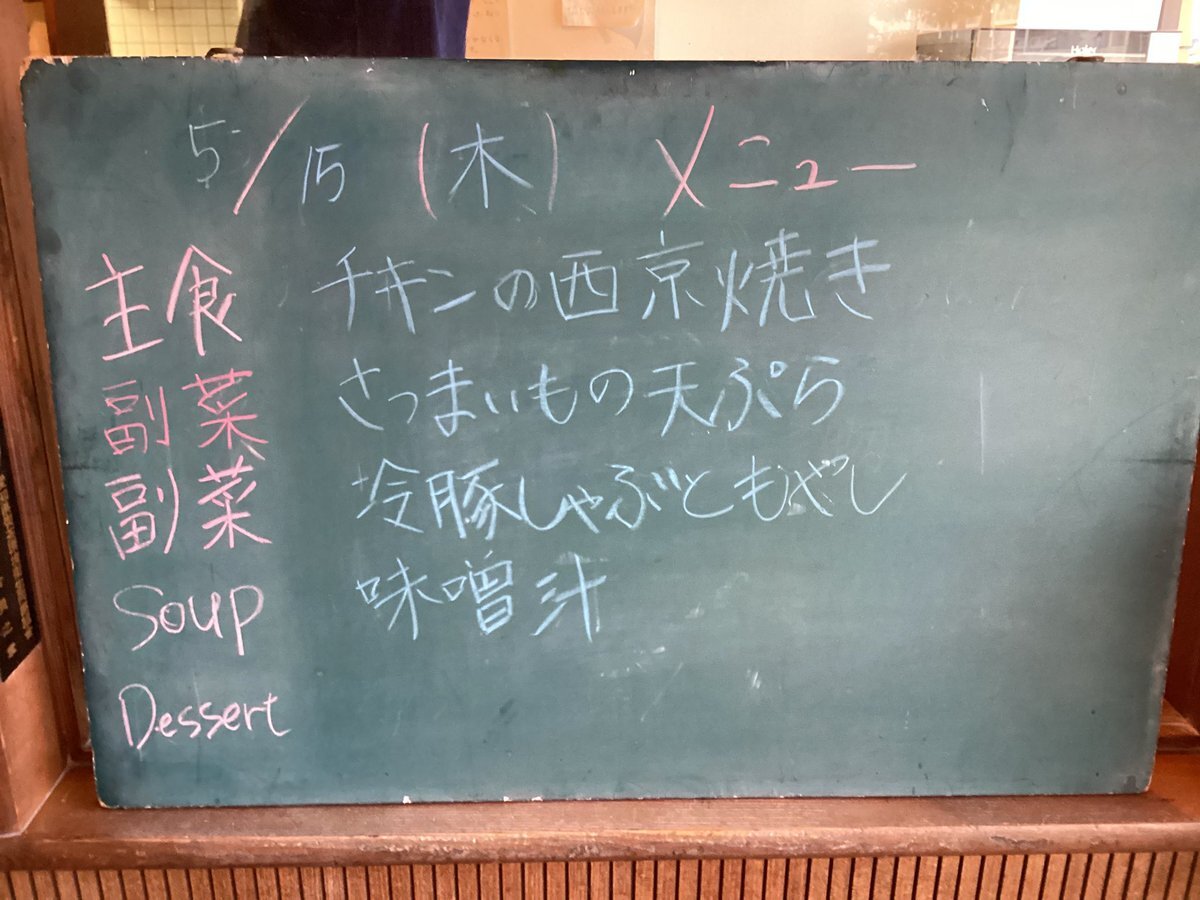 5/15 (木) メニュー
主食 チキンの西京焼き
副菜 さつまいもの天ぷら
副菜 冷豚しゃぶともやし
Soup 味噌汁
Dessert
Haier